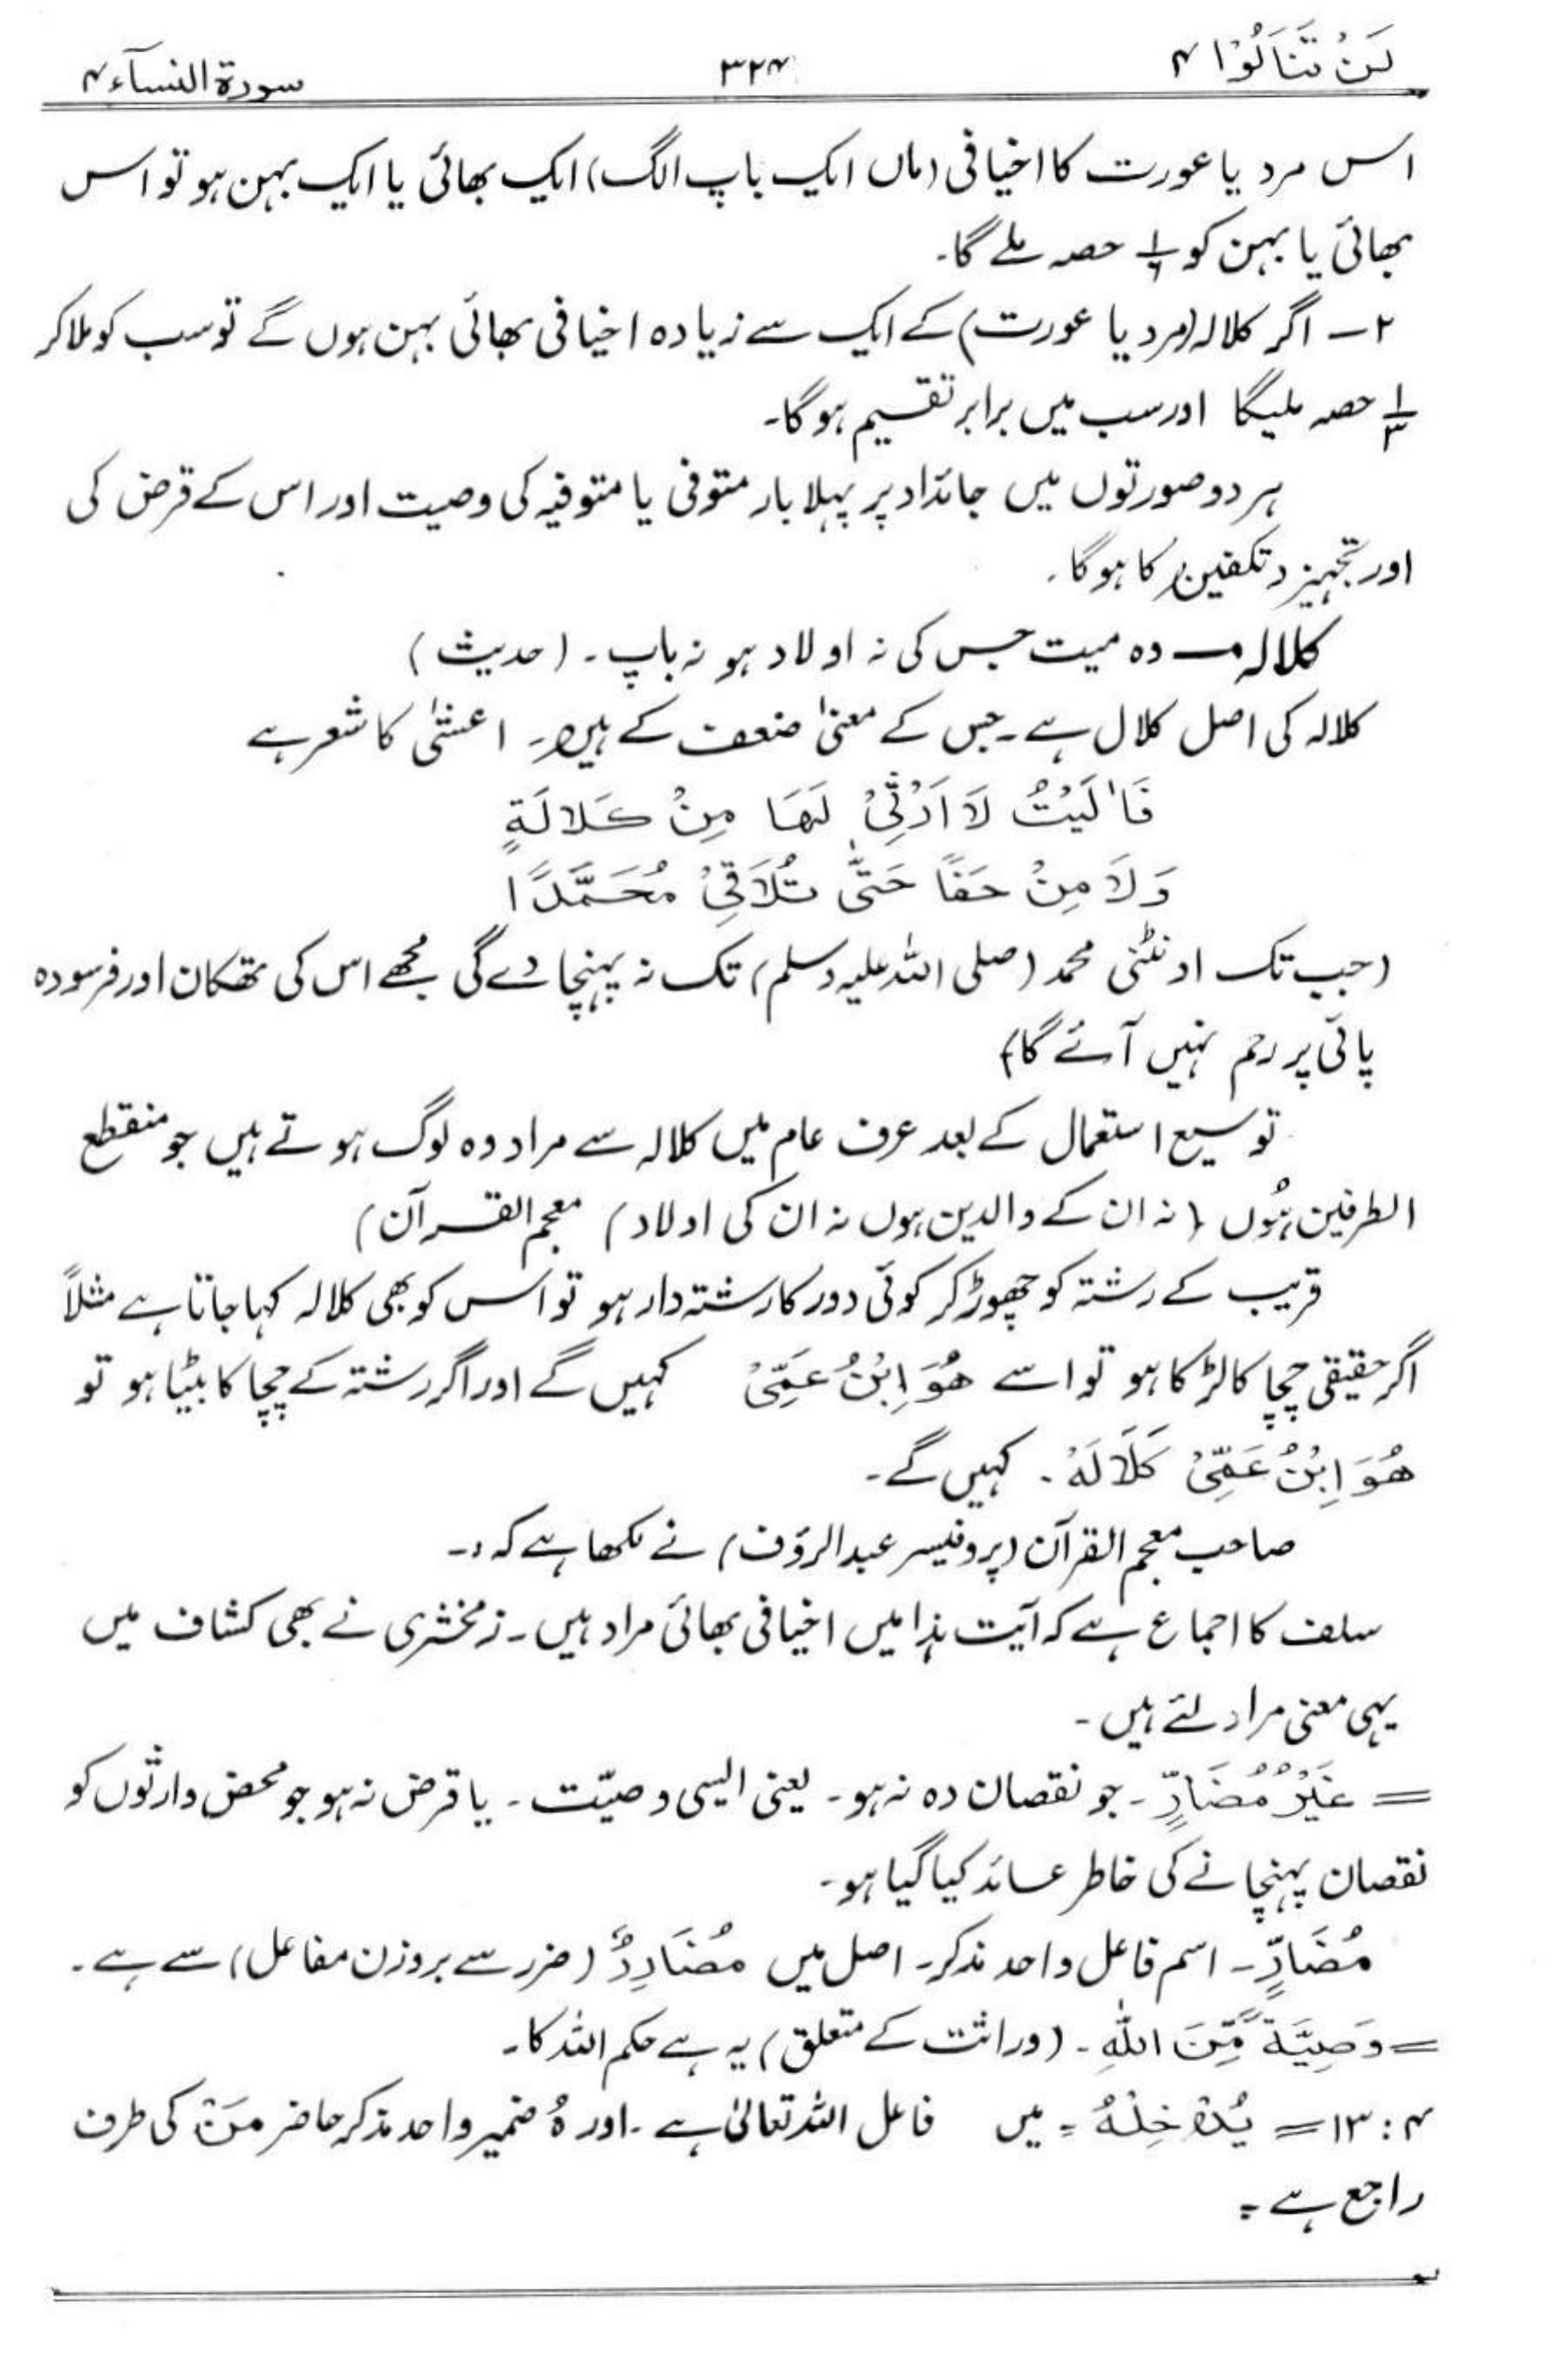 لَنْ تَنَالُوْا ۴ ۳۲۴ سورة النسآء ۴
اس مرد یا عورت کا اخیافی (ماں ایک باپ الگ) ایک بھائی یا ایک بہن ہو تو اس
بھائی یا بہن کو ۱/۶ حصہ ملے گا۔
۲ – اگر کلالہ (مرد یا عورت) کے ایک سے زیادہ اخیافی بھائی بہن ہوں گے تو سب کو ملا کر
۱/۳ حصہ ملیگا اور سب میں برابر تقسیم ہوگا۔
ہر دو صورتوں میں جائداد پر پہلا بار متوفی یا متوفیہ کی وصیت اور اس کے قرض کی
اور تجہیز و تکفین کا ہوگا۔
کلالہ ـ وہ میت جس کی نہ اولاد ہو نہ باپ۔ (حدیث)
کلالہ کی اصل کلال ہے۔ جس کے معنیٰ ضعف کے ہیں۔ اعشیٰ کا شعر ہے
فَاٰلَيْتُ لَا اَرْثِيْ لَهَا مِنْ كَلَالَةٍ
وَلَا مِنْ حَفًا حَتّٰى تُلَاقِيْ مُحَمَّدًا
(جب تک اونٹنی محمد (صلی اللہ علیہ وسلم) تک نہ پہنچا دے گی مجھے اس کی تھکان اور فرسودہ
پائی پر رحم نہیں آئے گا)
توسیع استعمال کے بعد عرف عام میں کلالہ سے مراد وہ لوگ ہوتے ہیں جو منقطع
الطرفین ہُوں (نہ ان کے والدین ہوں نہ ان کی اولاد) معجم القرآن)
قریب کے رشتہ کو چھوڑ کر کوئی دور کا رشتہ دار ہو تو اس کو بھی کلالہ کہا جاتا ہے مثلاً
اگر حقیقی چچا کا لڑکا ہو تو اسے هُوَ اِبْنُ عَمِّيْ کہیں گے اور اگر رشتہ کے چچا کا بیٹا ہو تو
هُوَ اِبْنُ عَمِّيْ كَلَالَهْ۔ کہیں گے۔
صاحب معجم القرآن (پروفیسر عبدالرؤف) نے لکھا ہے کہ:۔
سلف کا اجماع ہے کہ آیت ہذا میں اخیافی بھائی مراد ہیں۔ زمخشری نے بھی کشاف میں
یہی معنی مراد لئے ہیں۔
= غَيْرُ مُضَارٍّ۔ جو نقصان دہ نہ ہو۔ یعنی ایسی وصیّت۔ یا قرض نہ ہو جو محض وارثوں کو
نقصان پہنچانے کی خاطر عائد کیا گیا ہو۔
مُضَارٍّ۔ اسم فاعل واحد مذکر۔ اصل میں مُضَارِرٌ (ضرر سے بروزن مفاعل) سے ہے۔
= وَصِيَّةً مِّنَ اللّٰهِ۔ (وراثت کے متعلق) یہ ہے حکم اللہ کا۔
۴ : ۱۳ = يُدْخِلْهُ = میں فاعل اللہ تعالیٰ ہے۔ اور ہُ ضمیر واحد مذکر حاضر مَنْ کی طرف
راجع ہے =